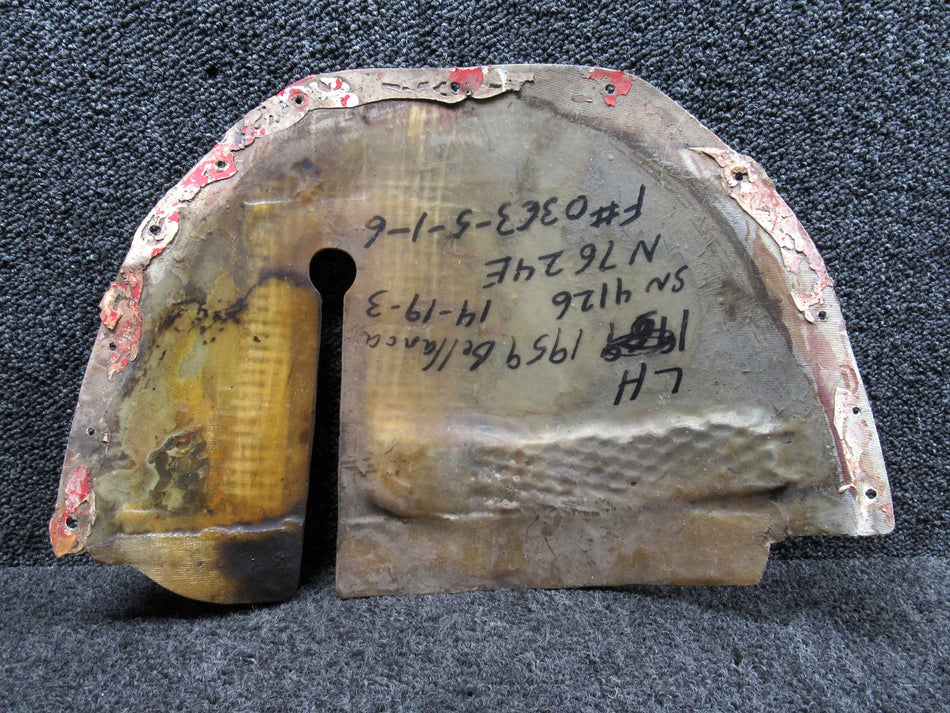 LH
1959 Bellanca
SN 4126 14-19-3
N7624E
F#0363-5-1-6